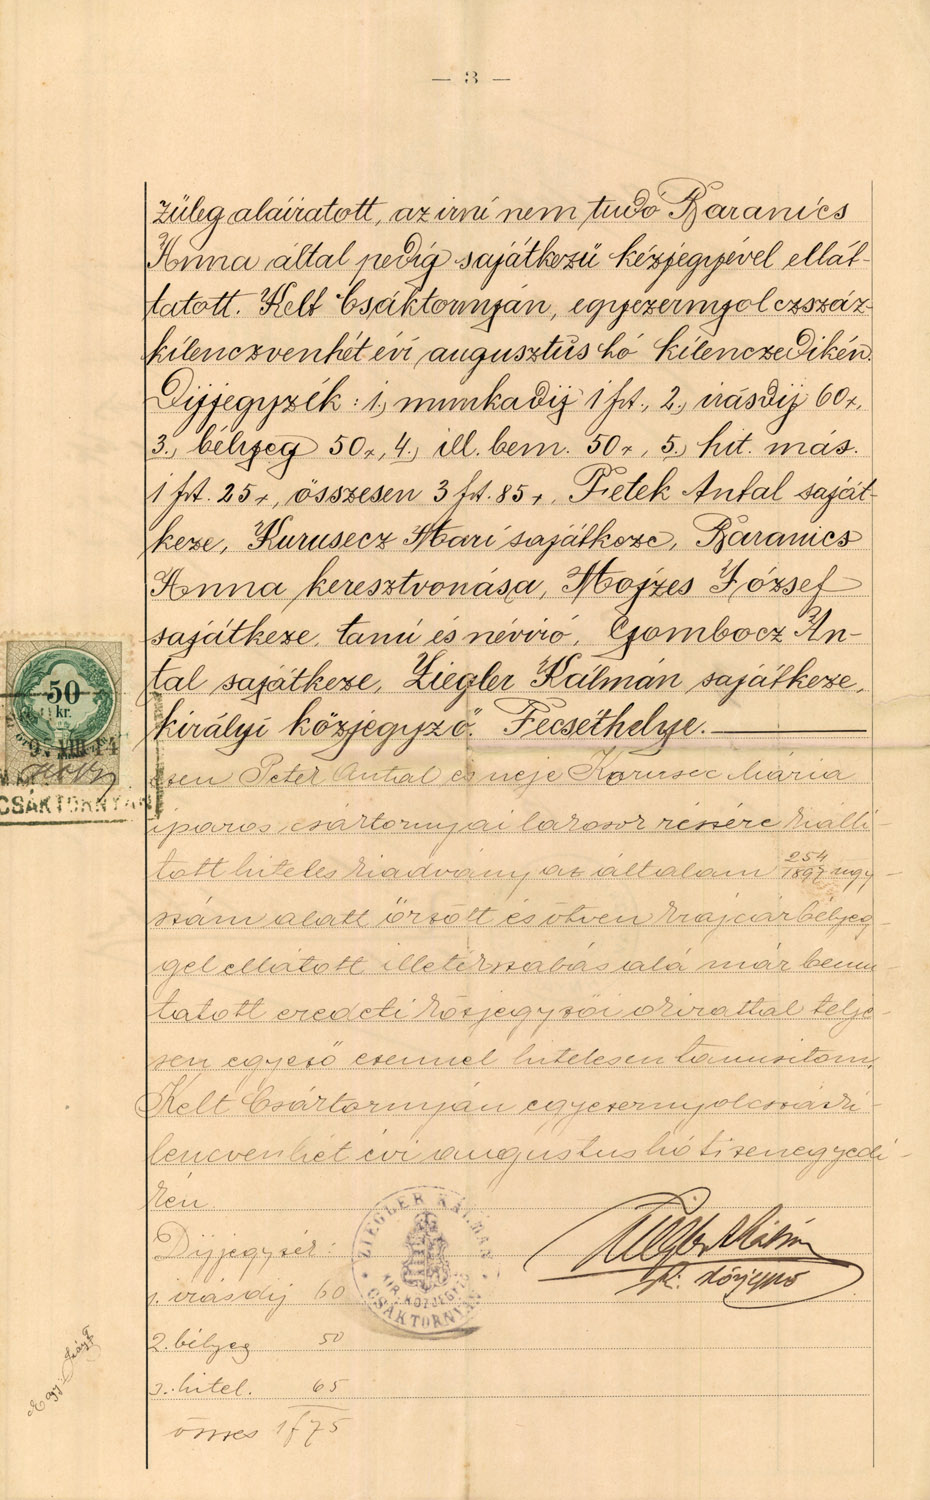 — 3 —
züleg aláiratott, az irni nem tudó Baranics
Anna által pedig sajátkezű kézjegyével ellát-
tatott. Kelt Csáktornyán, egyezernyolczszáz-
kilenczvenhét évi augusztus hó kilenczedikén.
Díjjegyzék: 1., munkadíj 1 frt., 2., irásdíj 60x.,
3., bélyeg 50x, 4., ill. bem. 50x, 5., hit. más.
1 frt. 25x, összesen 3 frt. 85x, Petek Antal saját-
keze, Kurusecz Mari sajátkeze, Baranics
Anna keresztvonása, Mojzes József
sajátkeze, tanú és névíró, Gombocz An-
tal sajátkeze, Ziegler Kálmán sajátkeze,
királyi közjegyző. Pecséthelye.
50
kr.
CSÁKTORNYÁN
Antal és neje Karusec Mária
iparos csáktornyai lakosok részére kiálli-
tott hiteles kiadvány az általam 254/1897 ügy-
szám alatt őrzött és ötven krajcár bélyeg-
gel ellátott illetékszabás alá már bemu-
tatott eredeti közjegyzői okirattal telje-
sen egyező ezennel hitelesen tanusitom.
Kelt Csáktornyán egyezernyolcszázki-
lencvenhét évi augusztus hó tizenegyedi-
kén.
Díjjegyzék:
1. irásdíj 60
2. bélyeg 50
3. hitel. 65
összes 1f75
ZIEGLER KÁLMÁN
KIR. KÖZJEGYZŐ
CSÁKTORNYÁN
Ziegler Kálmán
kir. közjegyző